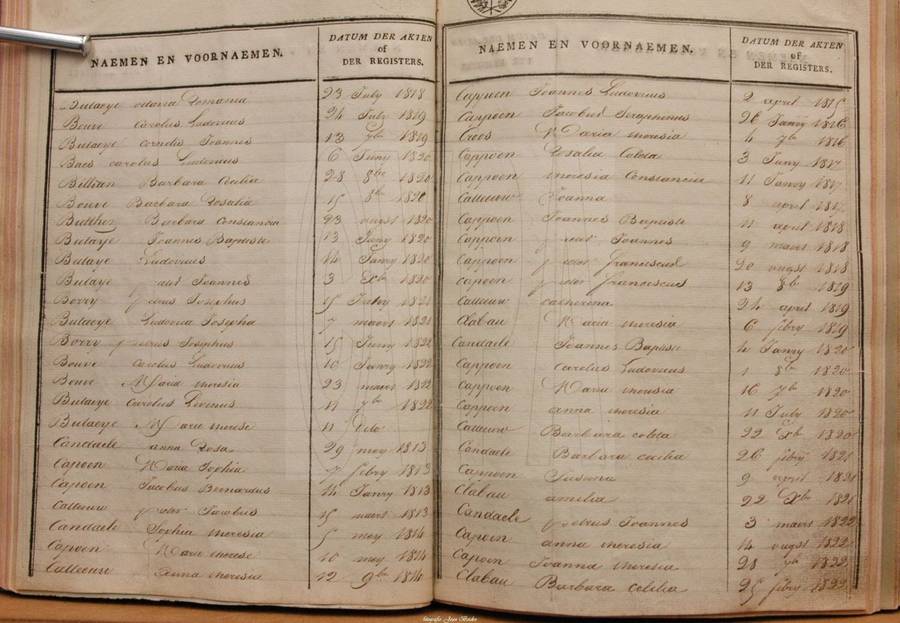 NAEMEN EN VOORNAEMEN.
DATUM DER AKTEN
of
DER REGISTERS.
Bulaeye Ludovica Romania 23 July 1818
Bouve Carolus Ludovicus 24 July 1819
Bulaeye Cornelis Joannes 13 7br 1819
Baes Carolus Ludovicus 6 Juny 1820
Billian Barbara 28 8bre 1820
Bouve Barbara Rosalia 15 8br 1820
Butther Barbara Constancia 23 ougst 1820
Bulaye Joannes Baptiste 13 Juny 1820
Bulaye Ludovicus 14 Janry 1820
Bulaye Joannes 3 Xbr 1820
Borry Josephus 15 1821
Bulaeye Ludovica Josepha 7 maers 1821
Borry Josephus 15 Juny 1822
Bouve Carolus Ludovicus 10 Janry 1822
Bouve Maria theresia 23 maers 1822
Bulaeye Carolus Livinus 11 7br 1822
Bulaeye Marie therese 11 dito
Candaele anna Rosa 29 mey 1813
Capoen Maria Sophia 7 febry 1813
Capoen Jacobus Bernardus 14 Janry 1813
Catteeuw pieter Jacobus 15 maers 1813
Candaele Sophia theresia 5 mey 1814
Capoen Marie therese 10 mey 1814
Catteeuw anna theresia 12 9br 1814
NAEMEN EN VOORNAEMEN.
DATUM DER AKTEN
of
DER REGISTERS.
Cappoen Joannes Ludovicus 2 april 1815
Cappoen Jacobus Seraphinus 26 Janry 1816
Croes Maria theresia 4 7br 1816
Cappoen Rosalia Coleta 3 Juny 1817
Cappoen theresia Constancia 11 Janry 1817
Catteeuw Joanna 8 april 1817
Cappoen Joannes Baptiste 11 april 1818
Cappoen Joannes 9 maers 1818
Cappoen pieter Franciscus 20 ougst 1818
Capoen pieter Franciscus 13 8br 1819
Catteeuw Catherina 24 april 1819
Clabau Maria theresia 6 febry 1819
Candaele Joannes Baptiste 4 Janry 1820
Cappoen Carolus Ludovicus 1 8br 1820
Cappoen Marie theresia 16 7br 1820
Cappoen anna theresia 11 July 1820
Catteeuw Barbara Coleta 22 Xbr 1820
Candaele Barbara Cecilia 26 febry 1821
Cappoen Susanna 9 april 1821
Clabau amelia 22 Xbr 1821
Candaele petrus Joannes 3 maers 1822
Capoen anna theresia 14 ougst 1822
Capoen Joanna theresia 28 7br 1822
Clabau Barbara Celilia 25 febry 1822